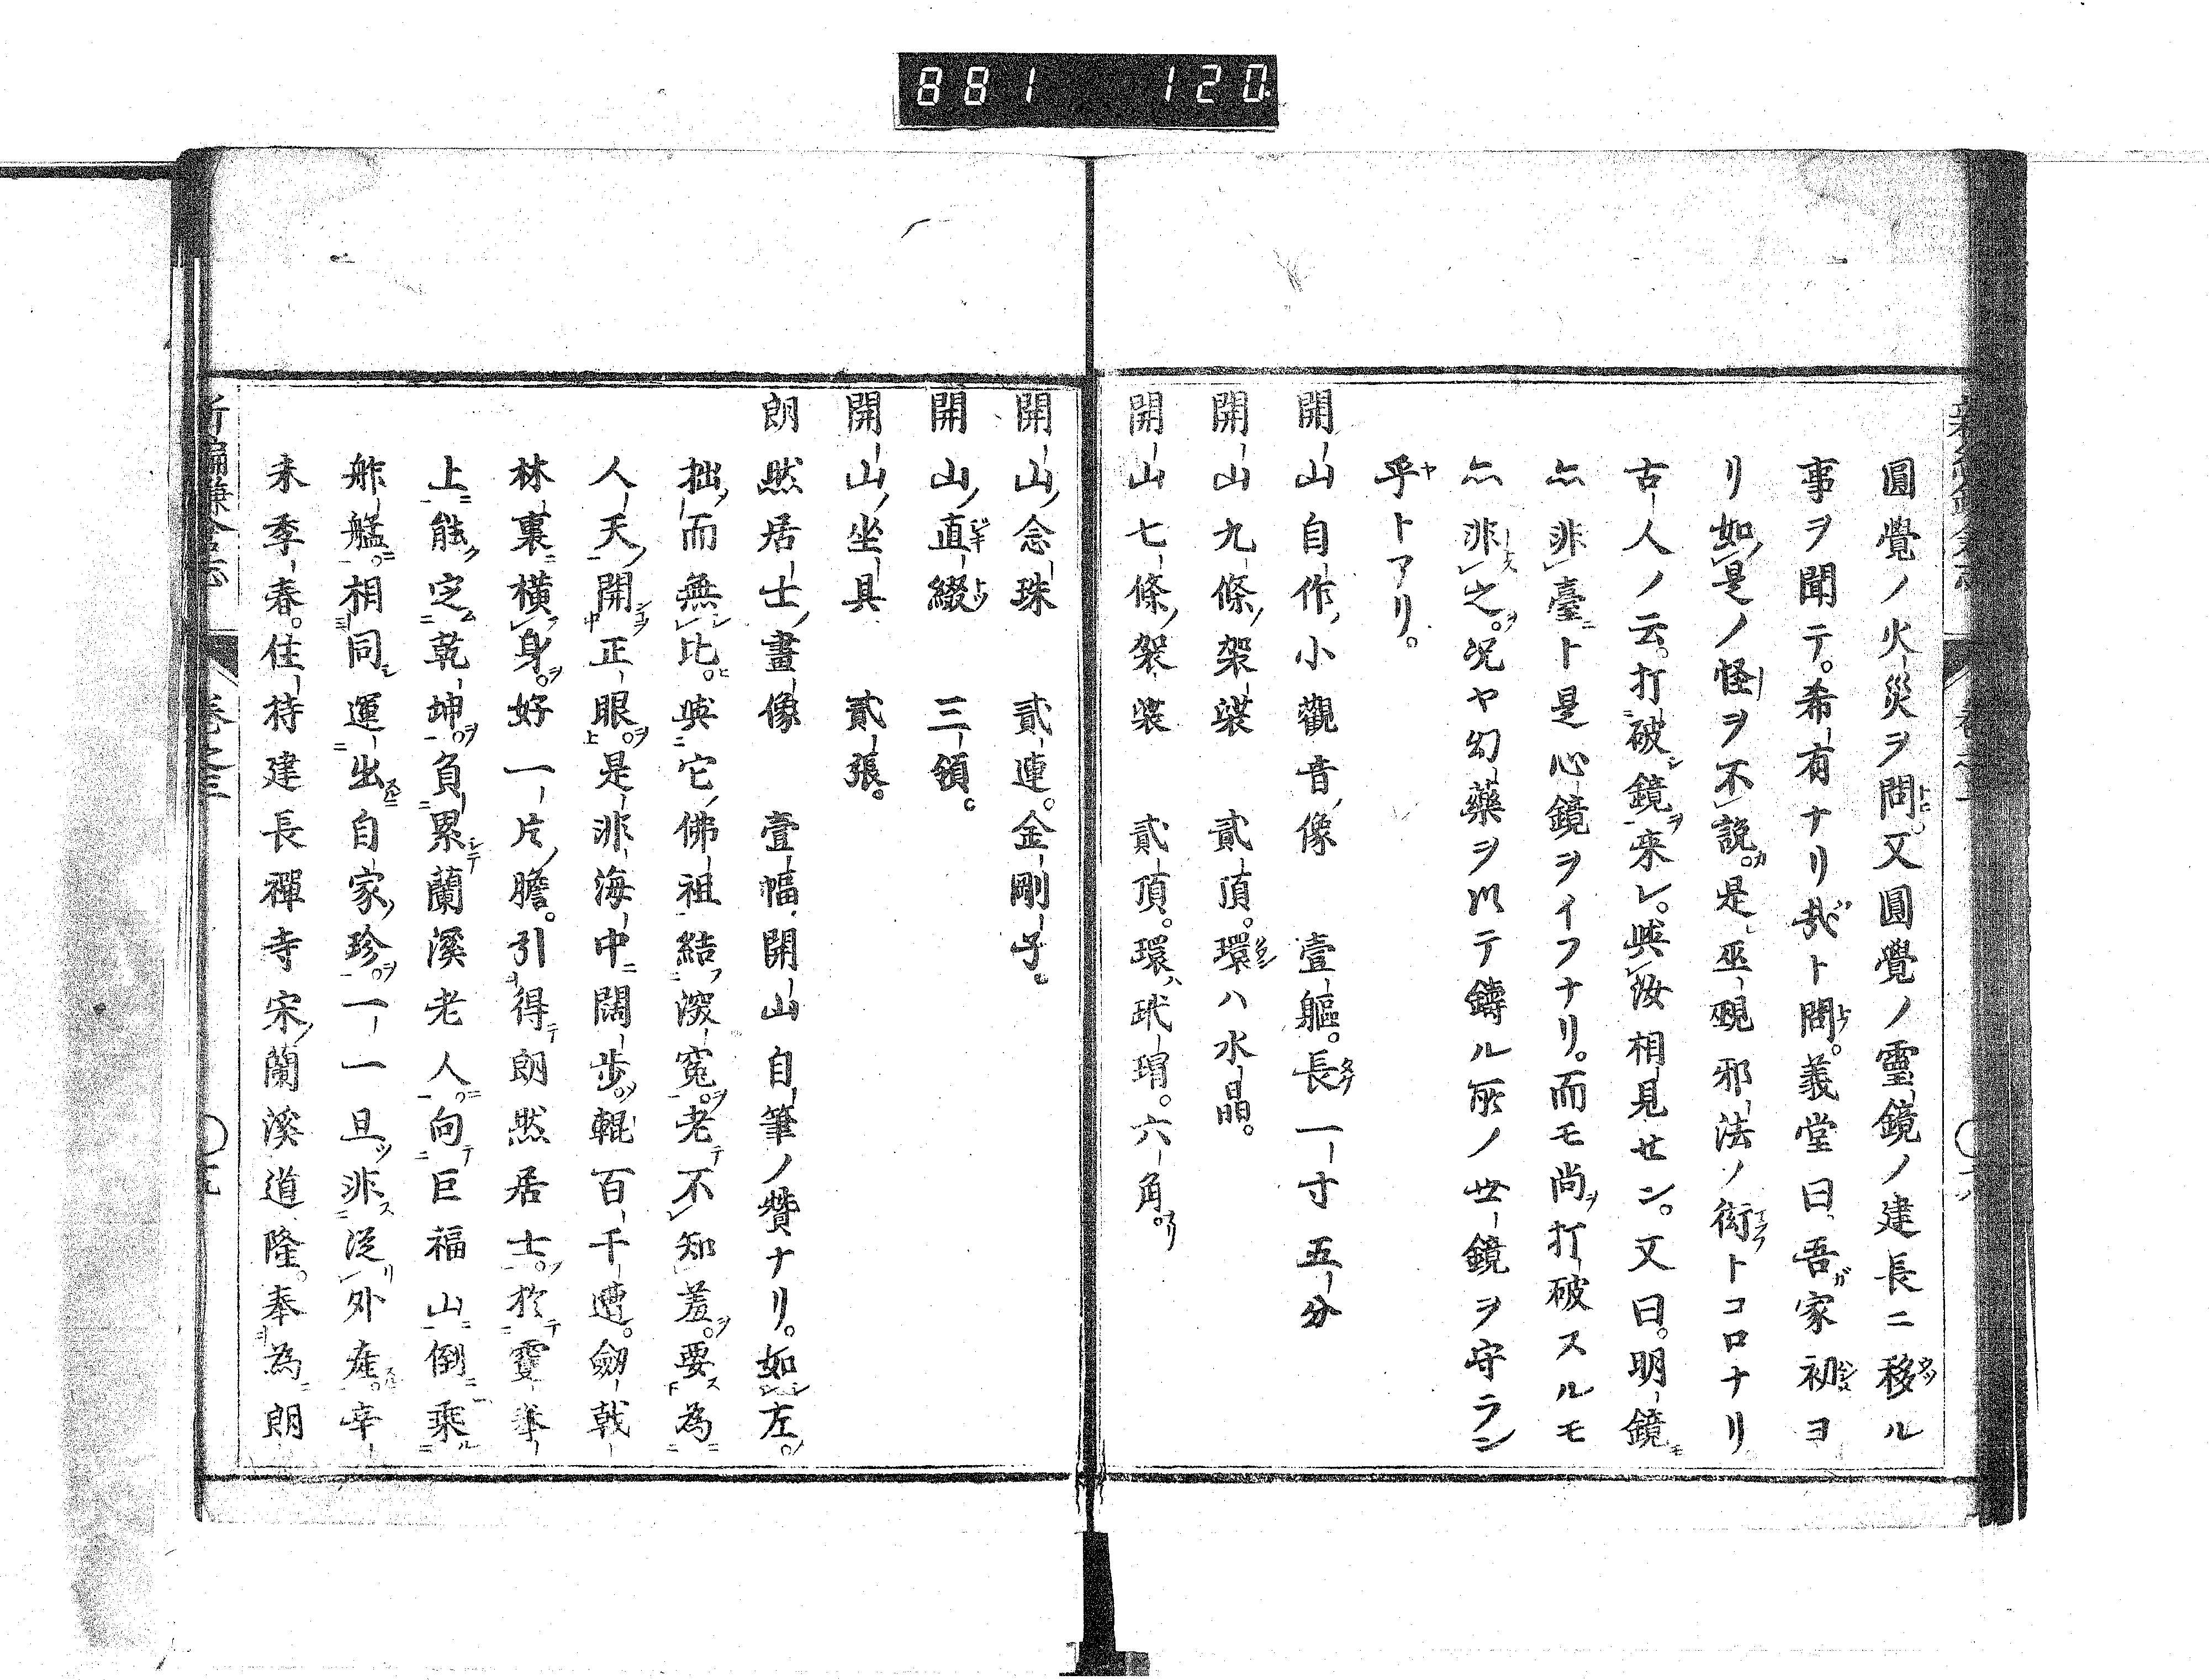 881 120
圓覺ノ火災ヲ問又圓覺ノ靈鏡ノ建長ニ移ル
事ヲ聞テ。希有ナリ哉ト問。義堂曰吾家初ヨ
リ如是ノ怪ヲ不説。是巫覡邪法ノ衒トコロナリ
古人ノ云。打破鏡来レ。與汝相見セン。又曰。明鏡
亦非臺ト是心鏡ヲイフナリ。而モ尚打破スルモ
亦非之。況ヤ幻藥ヲ以テ鑄ル所ノ世鏡ヲ守ラン
乎トアリ。
開山自作小觀音像 壹軀。長一寸五分
開山九條架裟 貳頂。環ハ水晶。
開山七條袈裟 貳頂。環ハ玳瑁。六角。
開山念珠 貳連。金剛子。
開山直綴 三領。
開山坐具 貳張。
朗然居士畫像 壹幅開山自筆ノ贊ナリ。如左。
拙而無比。與它佛祖結深寃。老不知羞。要為
人天開正眼。是非海中闊歩。輥百千遭。劒戟
林裏橫身。好一片膽。引得朗然居士。於靈峯
上能定乾坤。負累蘭溪老人向巨福山倒乘
舴艋。相同運出自家珍。一一旦非從外産。辛
未季春。住持建長禪寺宋蘭溪道隆。奉為朗
新編鎌倉志 卷之三